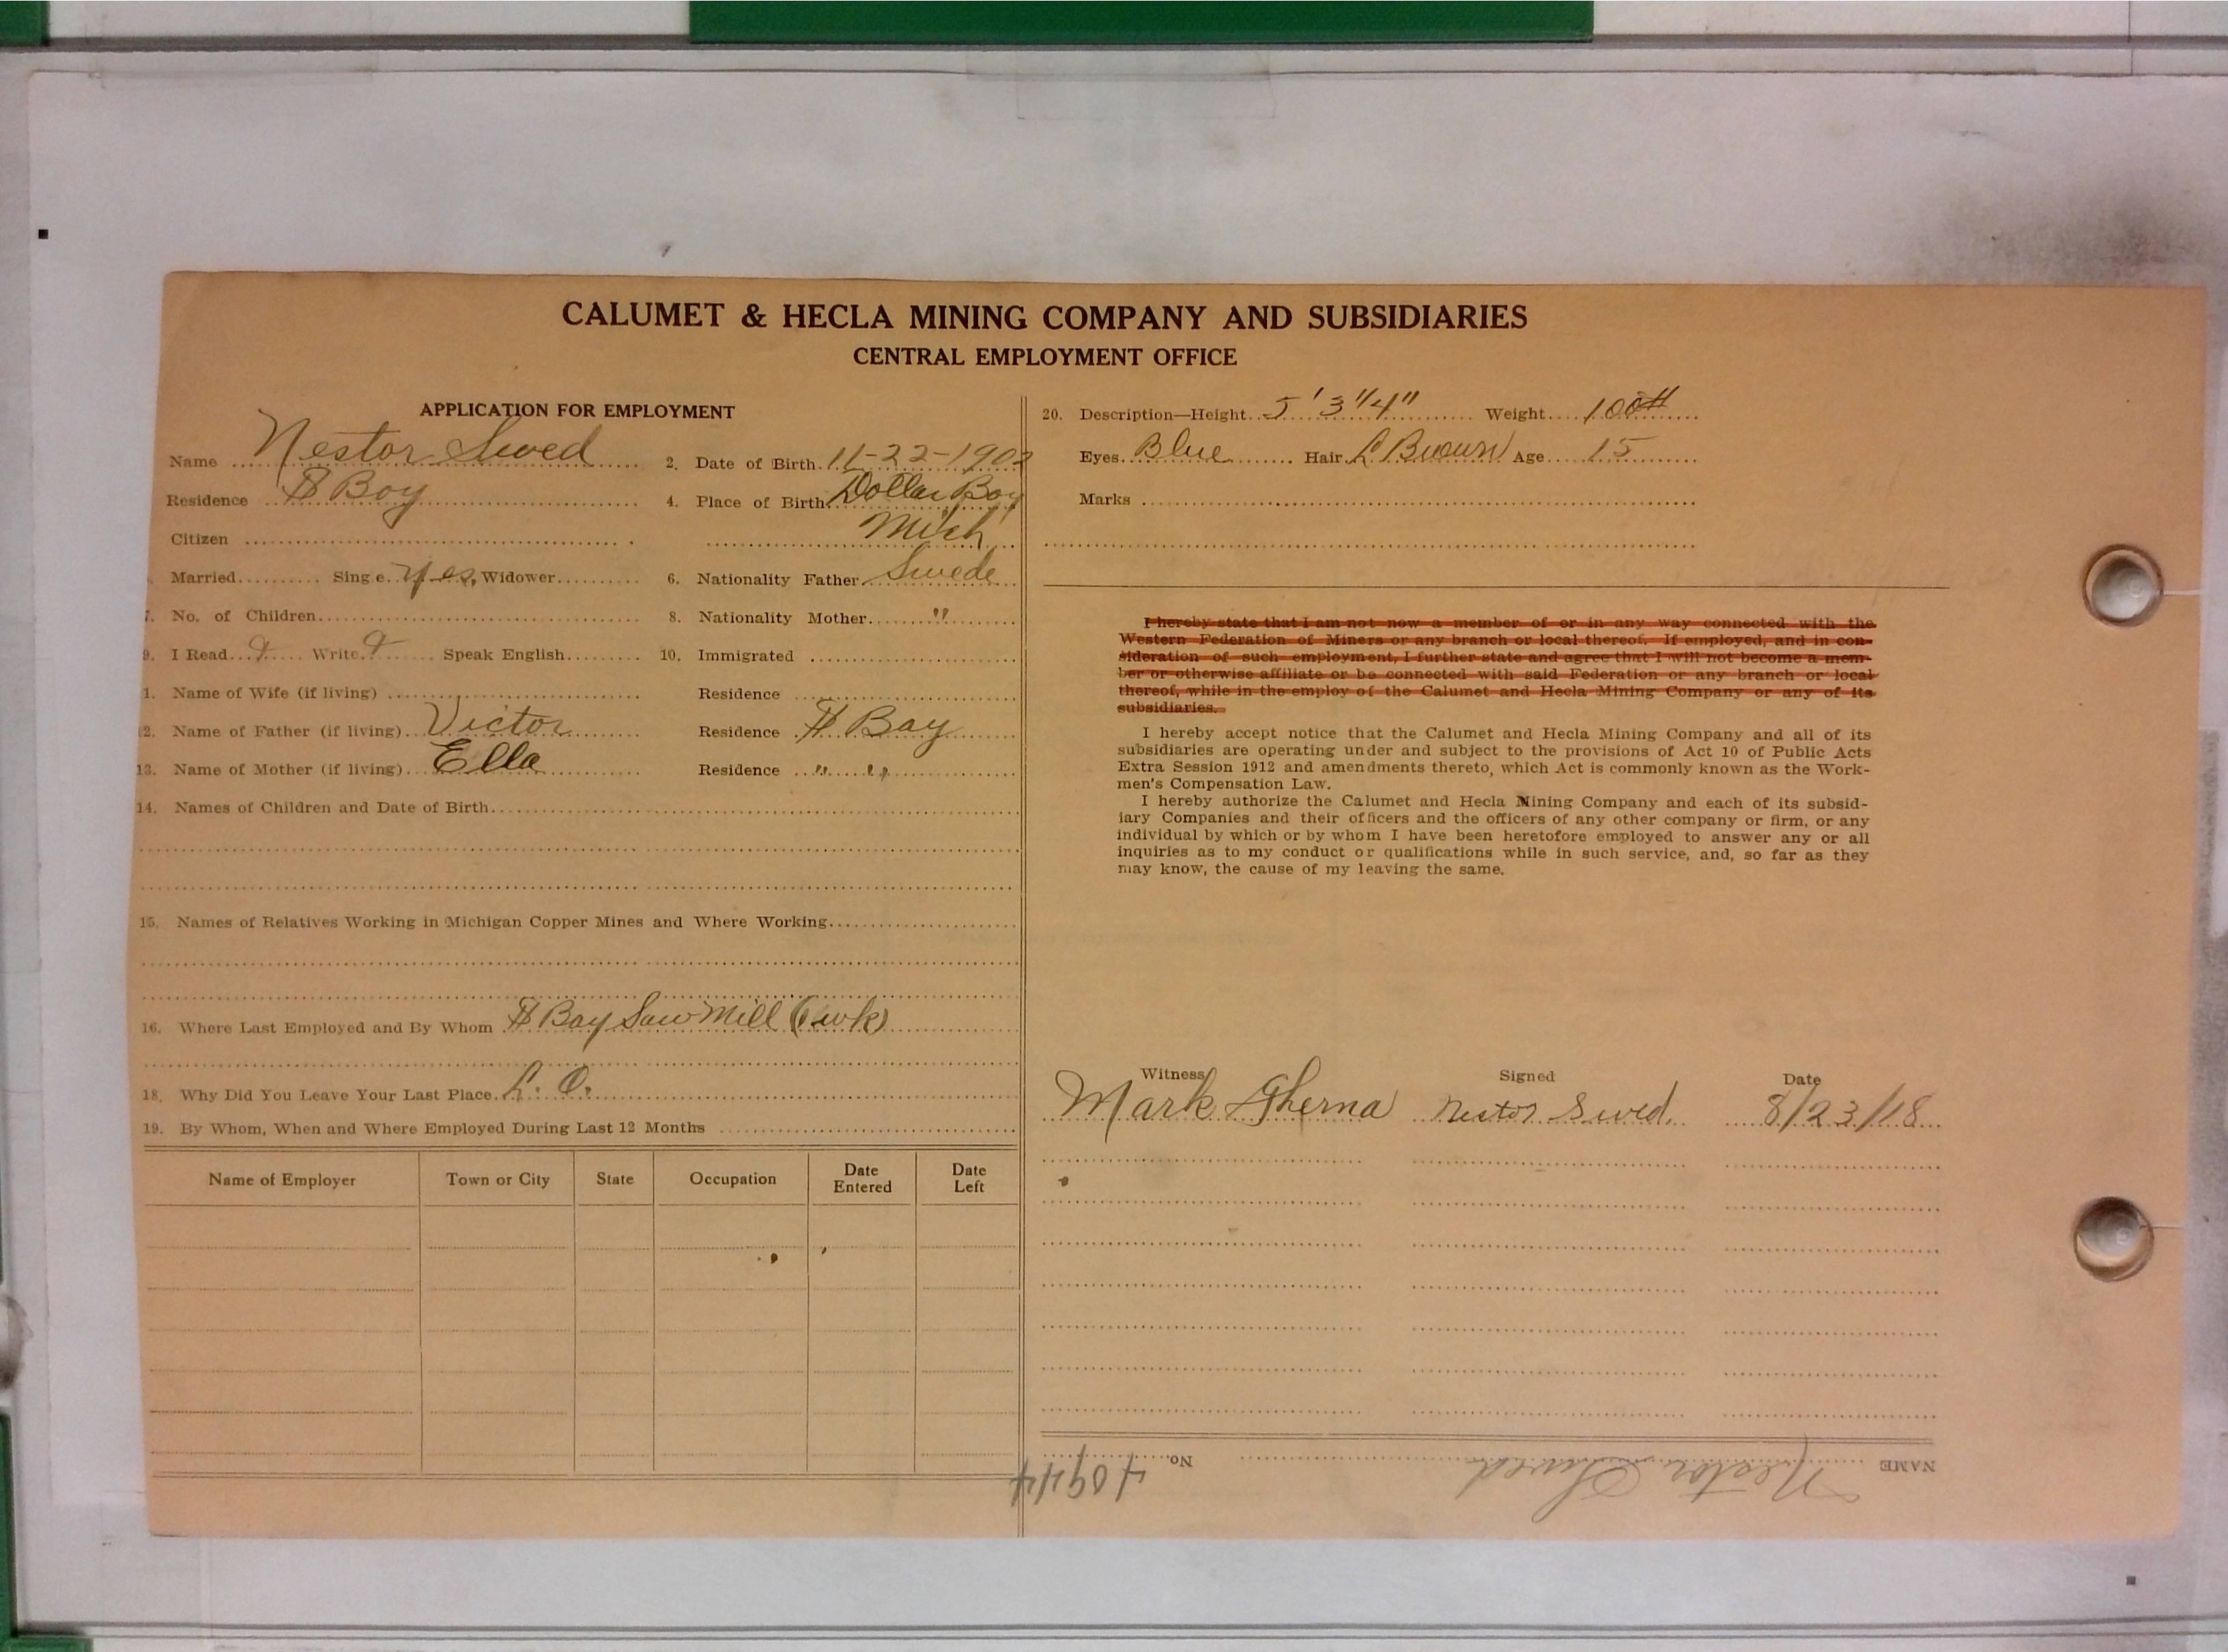 CALUMET & HECLA MINING COMPANY AND SUBSIDIARIES
CENTRAL EMPLOYMENT OFFICE
APPLICATION FOR EMPLOYMENT
Name Nestor Swed 2. Date of Birth 11-22-1902
Residence $ Bay 4. Place of Birth Dollar Bay
Citizen Mich
Married Single Yes, Widower 6. Nationality Father Swede
7. No. of Children 8. Nationality Mother "
9. I Read Write Speak English 10. Immigrated
1. Name of Wife (if living) Residence
12. Name of Father (if living) Victor Residence $ Bay
13. Name of Mother (if living) Ella Residence " "
14. Names of Children and Date of Birth
15. Names of Relatives Working in Michigan Copper Mines and Where Working
16. Where Last Employed and By Whom $ Bay Saw Mill (1 wk)
18. Why Did You Leave Your Last Place L. O.
19. By Whom, When and Where Employed During Last 12 Months
Name of Employer Town or City State Occupation Date Entered Date Left
20. Description—Height 5' 3 1/4" Weight 100#
Eyes Blue Hair L Brown Age 15
Marks
I hereby state that I am not now a member of or in any way connected with the
Western Federation of Miners or any branch or local thereof. If employed, and in con-
sideration of such employment, I further state and agree that I will not become a mem-
ber or otherwise affiliate or be connected with said Federation or any branch or local
thereof, while in the employ of the Calumet and Hecla Mining Company or any of its
subsidiaries.
I hereby accept notice that the Calumet and Hecla Mining Company and all of its
subsidiaries are operating under and subject to the provisions of Act 10 of Public Acts
Extra Session 1912 and amendments thereto, which Act is commonly known as the Work-
men's Compensation Law.
I hereby authorize the Calumet and Hecla Mining Company and each of its subsid-
iary Companies and their officers and the officers of any other company or firm, or any
individual by which or by whom I have been heretofore employed to answer any or all
inquiries as to my conduct or qualifications while in such service, and, so far as they
may know, the cause of my leaving the same.
Witness Signed Date
Mark Gherna Nestor Swed. 8/23/18
NAME Nestor Swed No. 40944